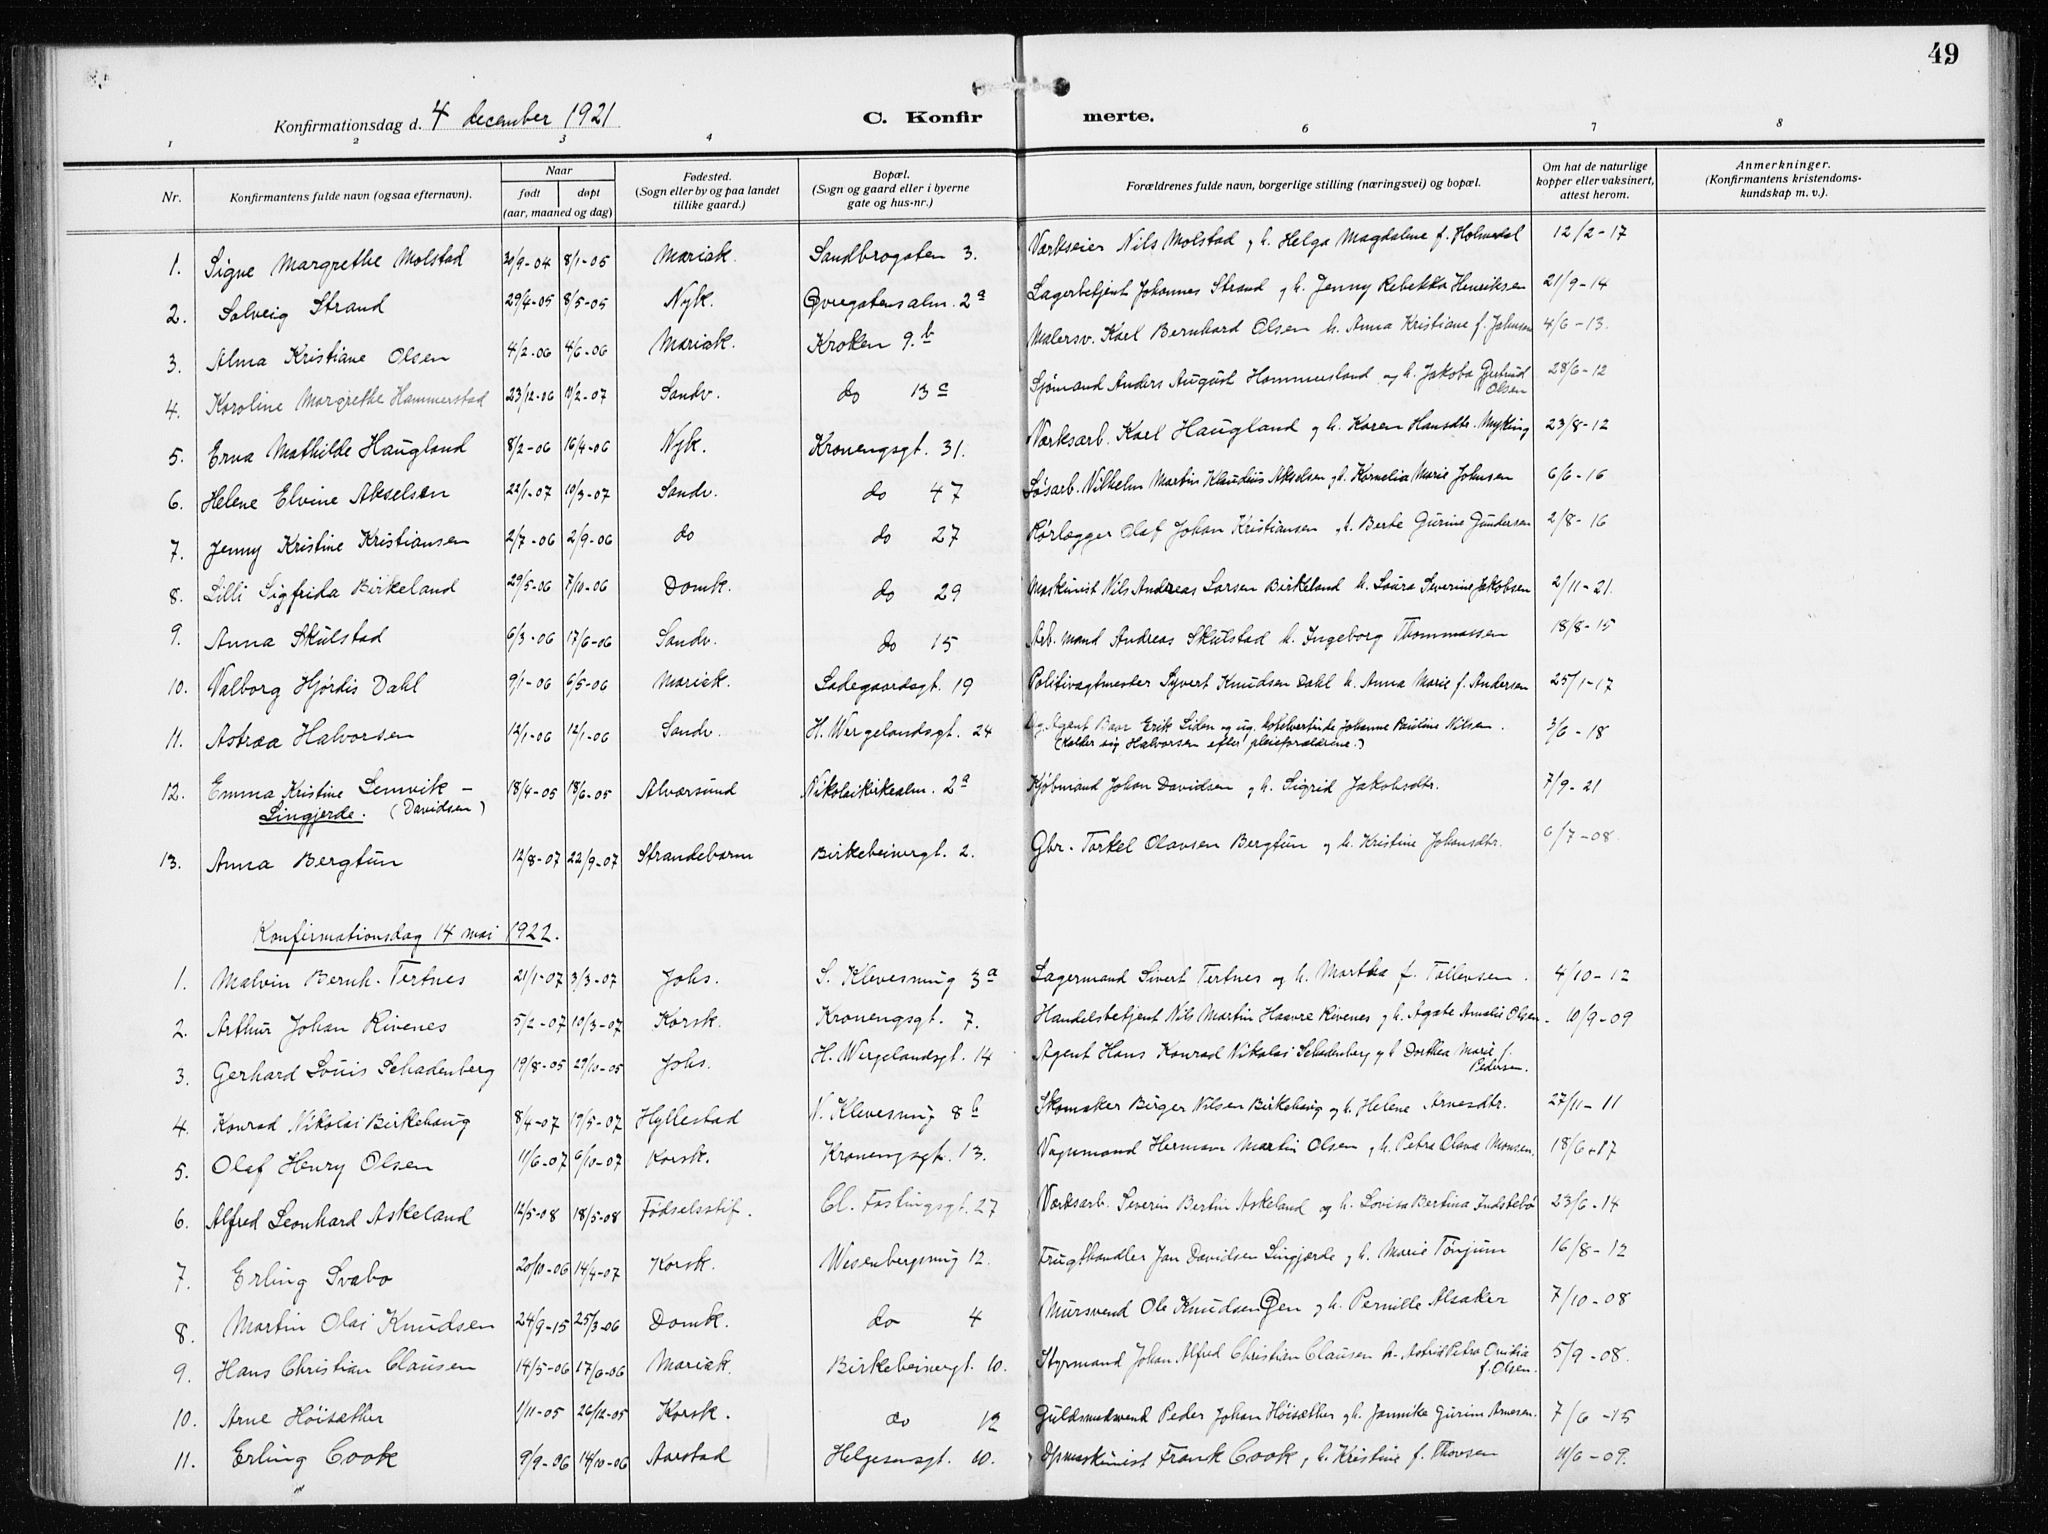 49
Konfirmationsdag d. 4 december 1921
C. Konfirmerte.
1 2 3 4 6 7 8
Nr. Konfirmantens fulde navn (ogsaa efternavn). Naar født døpt (aar, maaned og dag) Fødested. (Sogn eller by og paa landet tillike gaard.) Bopæl. (Sogn og gaard eller i byerne gate og hus-nr.) Forældrenes fulde navn, borgerlige stilling (næringsvei) og bopæl. Om hat de naturlige kopper eller vaksinert, attest herom. Anmerkninger. (Konfirmantens kristendomskundskap m. v.).
1. Signe Margrethe Molstad /9-04 8/1-05 Mariak. Sandbrogaten 3. Værkseier Nils Molstad og h. Helga Magdalene f. Holmedal 12/2-17
2. Solveig Strand 29/4-05 8/5-05 Nyk. Øvregatensalm. 2a Lagerbetjent Johannes Strand og h. Jenny Rebekka Henriksen 21/9-14
3. Alma Kristiane Olsen 4/2-06 4/6-06 Mariak. Kroken 9.b Malersv. Karl Bernhard Olsen h. Anna Kristiane f. Johnsen 4/6-13.
4. Karoline Margrethe Hammerstad 23/12-06 /2-07 Sandv. do 13c Sjømand Anders August Hammersland og h. Jakoba Gertrud Olsen 28/6-12
5. Erna Mathilde Haugland 8/2-06 16/4-06 Nyk. Kronengsgt. 31. Værksarb. Karl Haugland og h. Karen Hansdtr. Myking 23/8-12
6. Helene Elvine Akselsen 22/1-07 10/3-07 Sandv. do 47 Løsarb. Vilhelm Martin Klaudius Akselsen og h. Kornelia Marie Johnsen 6/6-16
7. Jenny Kristine Kristiansen 2/7-06 2/9-06 do do 27 Rørlægger Olaf Johan Kristiansen h. Berte Gurine Gundersen 2/8-16
8. Lilli Sigfrida Birkeland 29/5-06 7/10-06 Domk. do 29 Maskinist Nils Andreas Larsen Birkeland h. Laura Severine Jakobsen 2/11-21.
9. Anna Skulstad 6/3-06 17/6-06 Sandv. do 15 Arb. mand Andreas Skulstad h. Ingeborg Thommassen 18/8-15
10. Valborg Hjørdis Dahl 9/1-06 6/5-06 Mariak. Ladegaardsgt. 19 Politivagtmester Syvert Knudsen Dahl h. Anna Marie f. Andersen 25/1-17
11. Astræa Halvorsen 12/1-06 12/1-06 Sandv. H. Wergelandsgt. 24 Agent Erik Liden og ug. hotelvertinde Johanne Pauline Nilsen. 3/6-18
(Kalder sig Halvorsen efter pleieforældrene.)
12. Emma Kristine Lemvik- 18/4-05 18/6-05 Alværsund Nikolaikirkealm. 2a Kjøbmand Johan Davidsen og h. Sigrid Jakobsdtr. 7/9-21
Lingjerde. (Davidsen)
13. Anna Bergtun 12/8-07 22/9-07 Strandebarm Birkebeinergt. 2. Gbr. Torkel Olavsen Bergtun og h. Kristine Johansdtr. 6/7-08.
Konfirmationsdag 14 mai 1922.
1. Malvin Bernh. Tertnes 21/1-07 3/3-07 Johs. S. Klevesmug 3a Lagermand Sivert Tertnes og h. Martha f. Tollevsen. 4/10-12
2. Arthur Johan Rivenes 5/2-07 10/3-07 Korsk. Kronengsgt. 7. Handelsbetjent Nils Martin Haavre Rivenes og h. Agate Amalie Olsen. 10/9-09
3. Gerhard Louis Schadenberg 19/8-05 29/10-05 Johs. H. Wergelandsgt. 14 Agent Hans Konrad Nikolai Schadenberg og h Dorthea Marie f. Pedersen.
4. Konrad Nikolai Birkehaug 8/4-07 19/5-07 Hyllestad N. Klevesmug 8b Skomaker Birger Nilsen Birkehaug og h. Helene Arnesdtr. 27/11-11
5. Olaf Henry Olsen 11/6-07 6/10-07 Korsk. Kronengsgt. 13. Vognmand Herman Martin Olsen og h. Petra Olava Monsen. 18/6-17
6. Alfred Leonhard Askeland 12/5-08 18/5-08 Fødselsstif. Cl. Fastingsgt. 27 Værksarb. Severin Bertin Askeland og h. Lovisa Bertina Indstebø 23/6-14
7. Erling Svabo 20/10-06 14/4-07 Korsk. Wesenbergsmug 12. Frugthandler Jan Davidsen Lingjærde og h. Marie Tønjum 16/8-12
8. Martin Olai Knudsen 24/9-15 25/3-06 Domk. do 4 Mursvend Ole Knudsen Gjen og h. Pernille Alsaker 7/10-08
9. Hans Christian Clausen 14/5-06 17/6-06 Mariak. Birkebeinergt. 10. Styrmand Johan Alfred Christian Clausen h. Astrid Petra f. Olsen. 5/9-08.
10. Arne Höisæther 1/11-05 26/12-05 Korsk. do 12 Guldsmedsvend Peder Johan Höisæther og h. Jannika Gurine Arnesen. 7/6-15
11. Erling Cook 9/9-06 14/10-06 Aarstad Helgesensgt. 10. Opmaskinist Frank Cook, h. Kristine f. Thorsen 11/6-09.